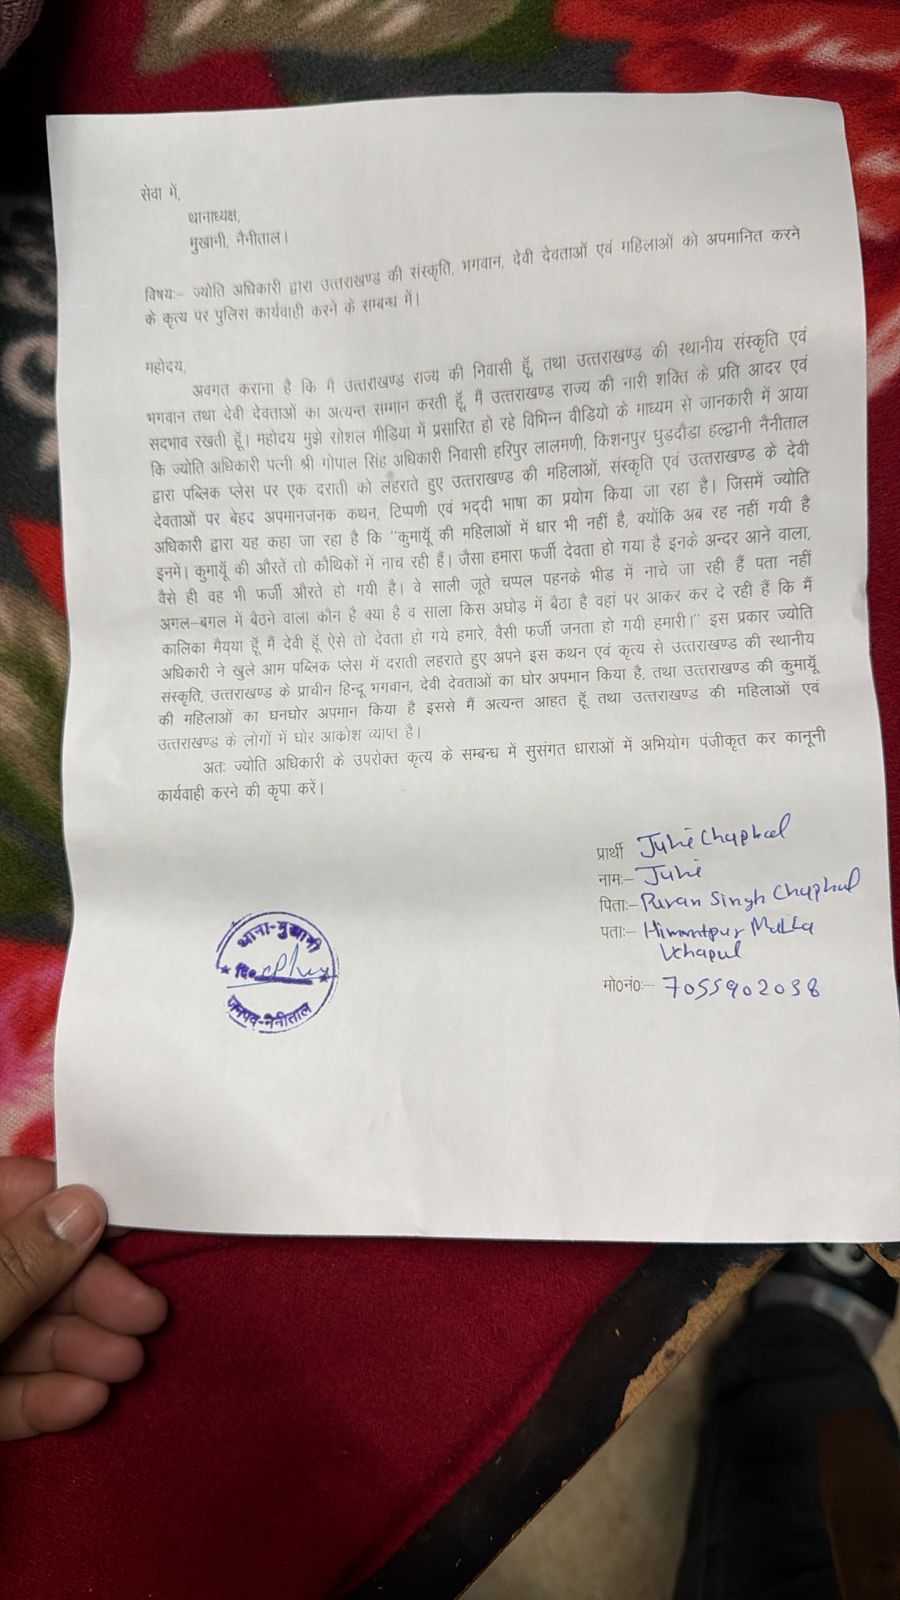 सेवा में,
थानाध्यक्ष,
मुखानी, नैनीताल।
विषयः– ज्योति अधिकारी द्वारा उत्तराखण्ड की संस्कृति, भगवान, देवी देवताओं एवं महिलाओं को अपमानित करने
के कृत्य पर पुलिस कार्यवाही करने के सम्बन्ध में।
महोदय,
अवगत कराना है कि मै उत्तराखण्ड राज्य की निवासी हूँ, तथा उत्तराखण्ड की स्थानीय संस्कृति एवं
भगवान तथा देवी देवताओं का अत्यन्त सम्मान करती हूँ, मैं उत्तराखण्ड राज्य की नारी शक्ति के प्रति आदर एवं
सदभाव रखती हूँ। महोदय मुझे सोशल मीडिया में प्रसारित हो रहे विभिन्न वीडियो के माध्यम से जानकारी में आया
कि ज्योति अधिकारी पत्नी श्री गोपाल सिंह अधिकारी निवासी हरिपुर लालमणी, किशनपुर घुडदौडा हल्द्वानी नैनीताल
द्वारा पब्लिक प्लेस पर एक दराती को लहराते हुए उत्तराखण्ड की महिलाओं, संस्कृति एवं उत्तराखण्ड के देवी
देवताओं पर बेहद अपमानजनक कथन, टिप्पणी एवं भद्दी भाषा का प्रयोग किया जा रहा है। जिसमें ज्योति
अधिकारी द्वारा यह कहा जा रहा है कि "कुमायूँ की महिलाओं में धार भी नहीं है, क्योंकि अब रह नहीं गयी है
इनमें। कुमायूँ की औरतें तो कौथिकों में नाच रही हैं। जैसा हमारा फर्जी देवता हो गया है इनके अन्दर आने वाला,
वैसे ही वह भी फर्जी औरते हो गयी है। वे साली जूते चप्पल पहनके भीड में नाचे जा रही हैं पता नहीं
अगल-बगल में बैठने वाला कौन है क्या है व साला किस अघोड में बैठा है वहां पर आकर कर दे रही हैं कि मैं
कालिका मैय्या हूँ मैं देवी हूँ ऐसे तो देवता हो गये हमारे, वैसी फर्जी जनता हो गयी हमारी।" इस प्रकार ज्योति
अधिकारी ने खुले आम पब्लिक प्लेस में दराती लहराते हुए अपने इस कथन एवं कृत्य से उत्तराखण्ड की स्थानीय
संस्कृति, उत्तराखण्ड के प्राचीन हिन्दू भगवान, देवी देवताओं का घोर अपमान किया है, तथा उत्तराखण्ड की कुमायूँ
की महिलाओं का घनघोर अपमान किया है इससे मैं अत्यन्त आहत हूँ तथा उत्तराखण्ड की महिलाओं एवं
उत्तराखण्ड के लोगों में घोर आक्रोश व्याप्त है।
अतः ज्योति अधिकारी के उपरोक्त कृत्य के सम्बन्ध में सुसंगत धाराओं में अभियोग पंजीकृत कर कानूनी
कार्यवाही करने की कृपा करें।
प्रार्थी Juhi Chuphal
नामः– Juhi
पिताः– Puran Singh Chuphal
पताः– Himmatpur Malla
Uchapul
मो0नं0ः– 7055902038
थाना-मुखानी
दि०
जनपद-नैनीताल